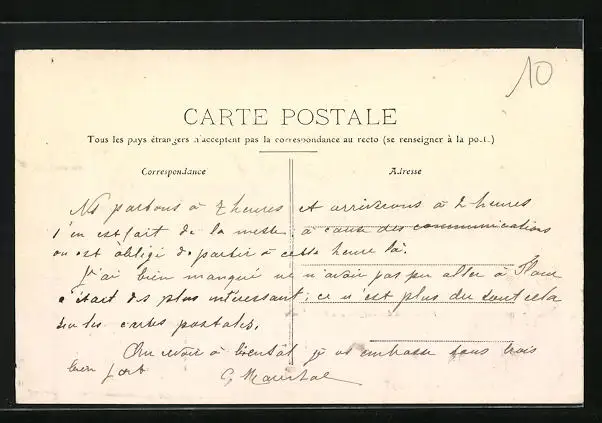 10
CARTE POSTALE
Tous les pays étrangers n'acceptent pas la correspondance au recto (se renseigner à la poste)
Correspondance
Adresse
Ns partons à 7 heures et arriverons à 2 heures
s'en est fait de la messe, à cause des communications
on est obligé de partir à cette heure là.
J'ai bien manqué de n'avoir pas pu aller à
c'était des plus intéressant ; ce n'est plus du tout cela
sur les cartes postales.
Au revoir à bientôt je vs embrasse tous trois
bien fort